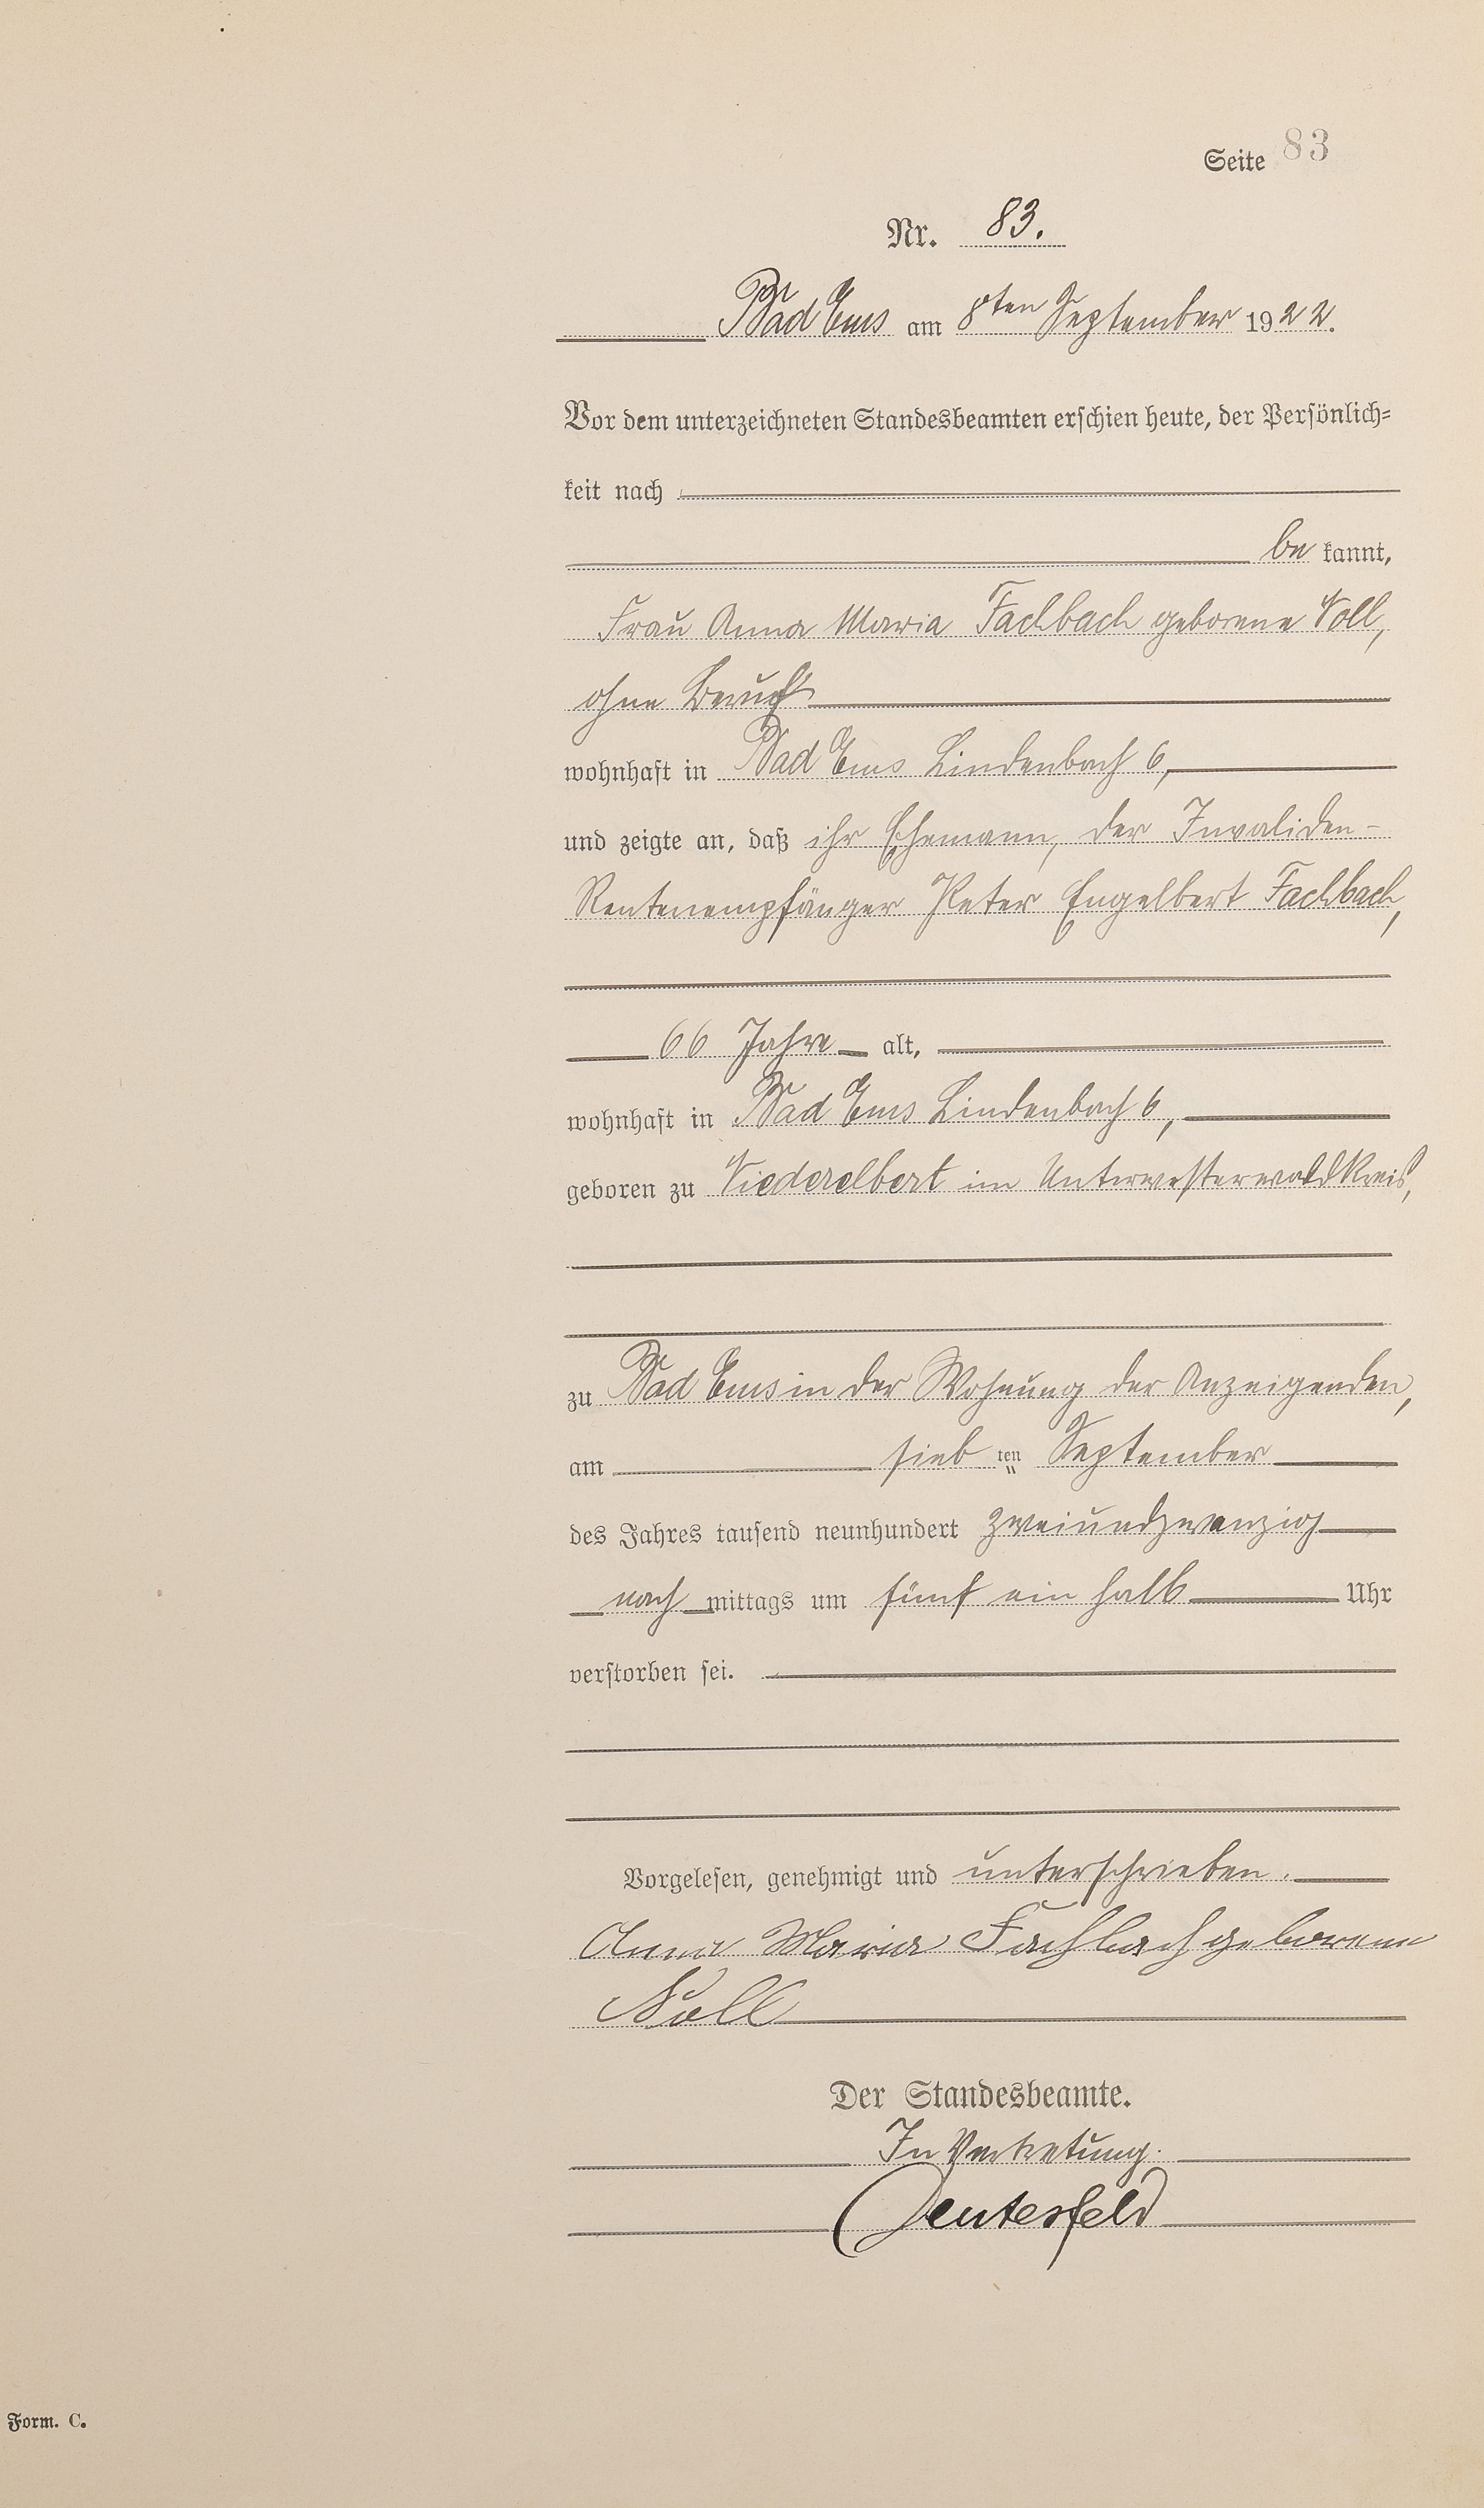 Seite 83
Nr. 83.
Bad Ems am 8ten September 1922.
Vor dem unterzeichneten Standesbeamten erschien heute, der Persönlich=
keit nach
be kannt,
Frau Anna Maria Fachbach geborene Noll,
ohne Beruf
wohnhaft in Bad Ems Lindenbach 6,
und zeigte an, daß ihr Ehemann, der Invaliden-
Rentenempfänger Peter Engelbert Fachbach,
66 Jahre alt,
wohnhaft in Bad Ems Lindenbach 6,
geboren zu Niederelbert im Unterwesterwaldkreis,
zu Bad Ems in der Wohnung der Anzeigenden,
am sieb ten September
des Jahres tausend neunhundert zweiundzwanzig
nach mittags um fünf ein halb Uhr
verstorben sei.
Vorgelesen, genehmigt und unterschrieben.
Anna Maria Fachbach geborene
Noll
Der Standesbeamte.
In Vertretung.
Deutesfeld
Form. C.